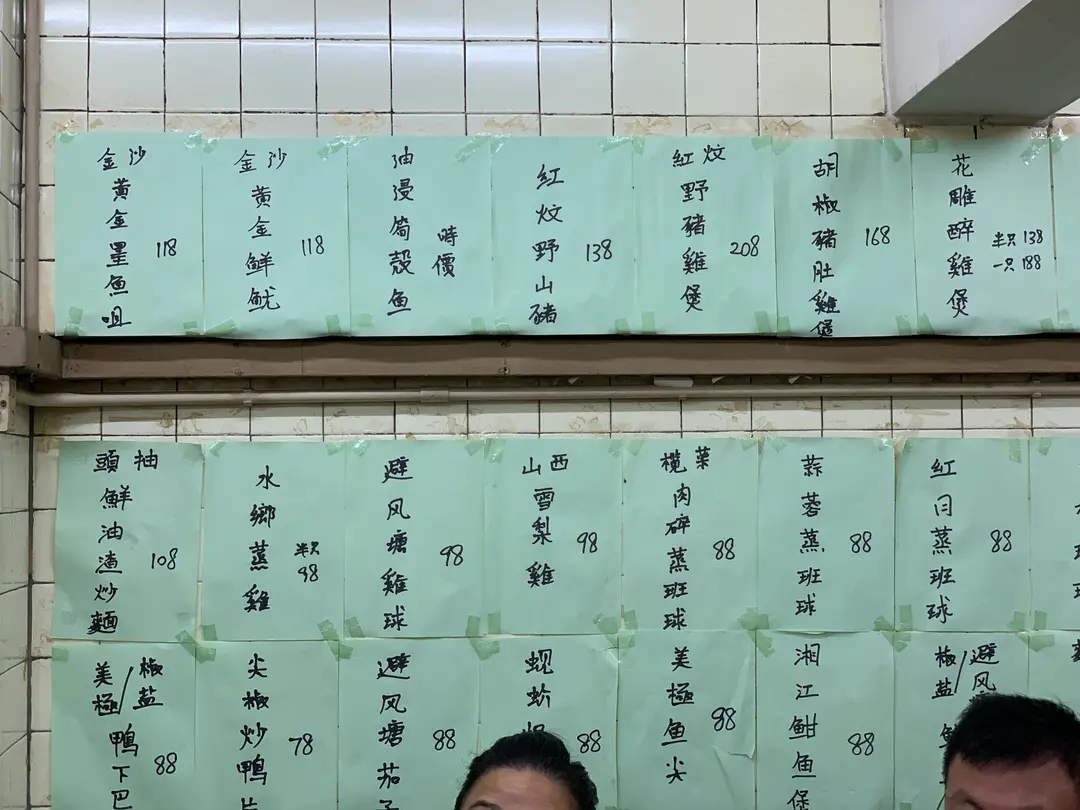 金沙黃金星魚咀 118
金沙黃金鮮魷 118
油浸筍殼魚 時價
紅炆野山豬 138
紅炆野豬雞煲 208
胡椒豬肚雞煲 168
花雕醉雞煲 半只 138 一只 188
頭抽鮮油渣炒麵 108
水鄉蒸雞 半只 98
避风塘雞球 98
山西雪梨雞 98
榄菜肉碎蒸班球 88
蒜蓉蒸班球 88
紅蒸班球 88
美極/椒盐鴨下巴 88
尖椒炒鴨片 78
避风塘茄子 88
蚬蚧 88
美極鱼尖 88
湘江魽鱼煲 88
椒盐/避风